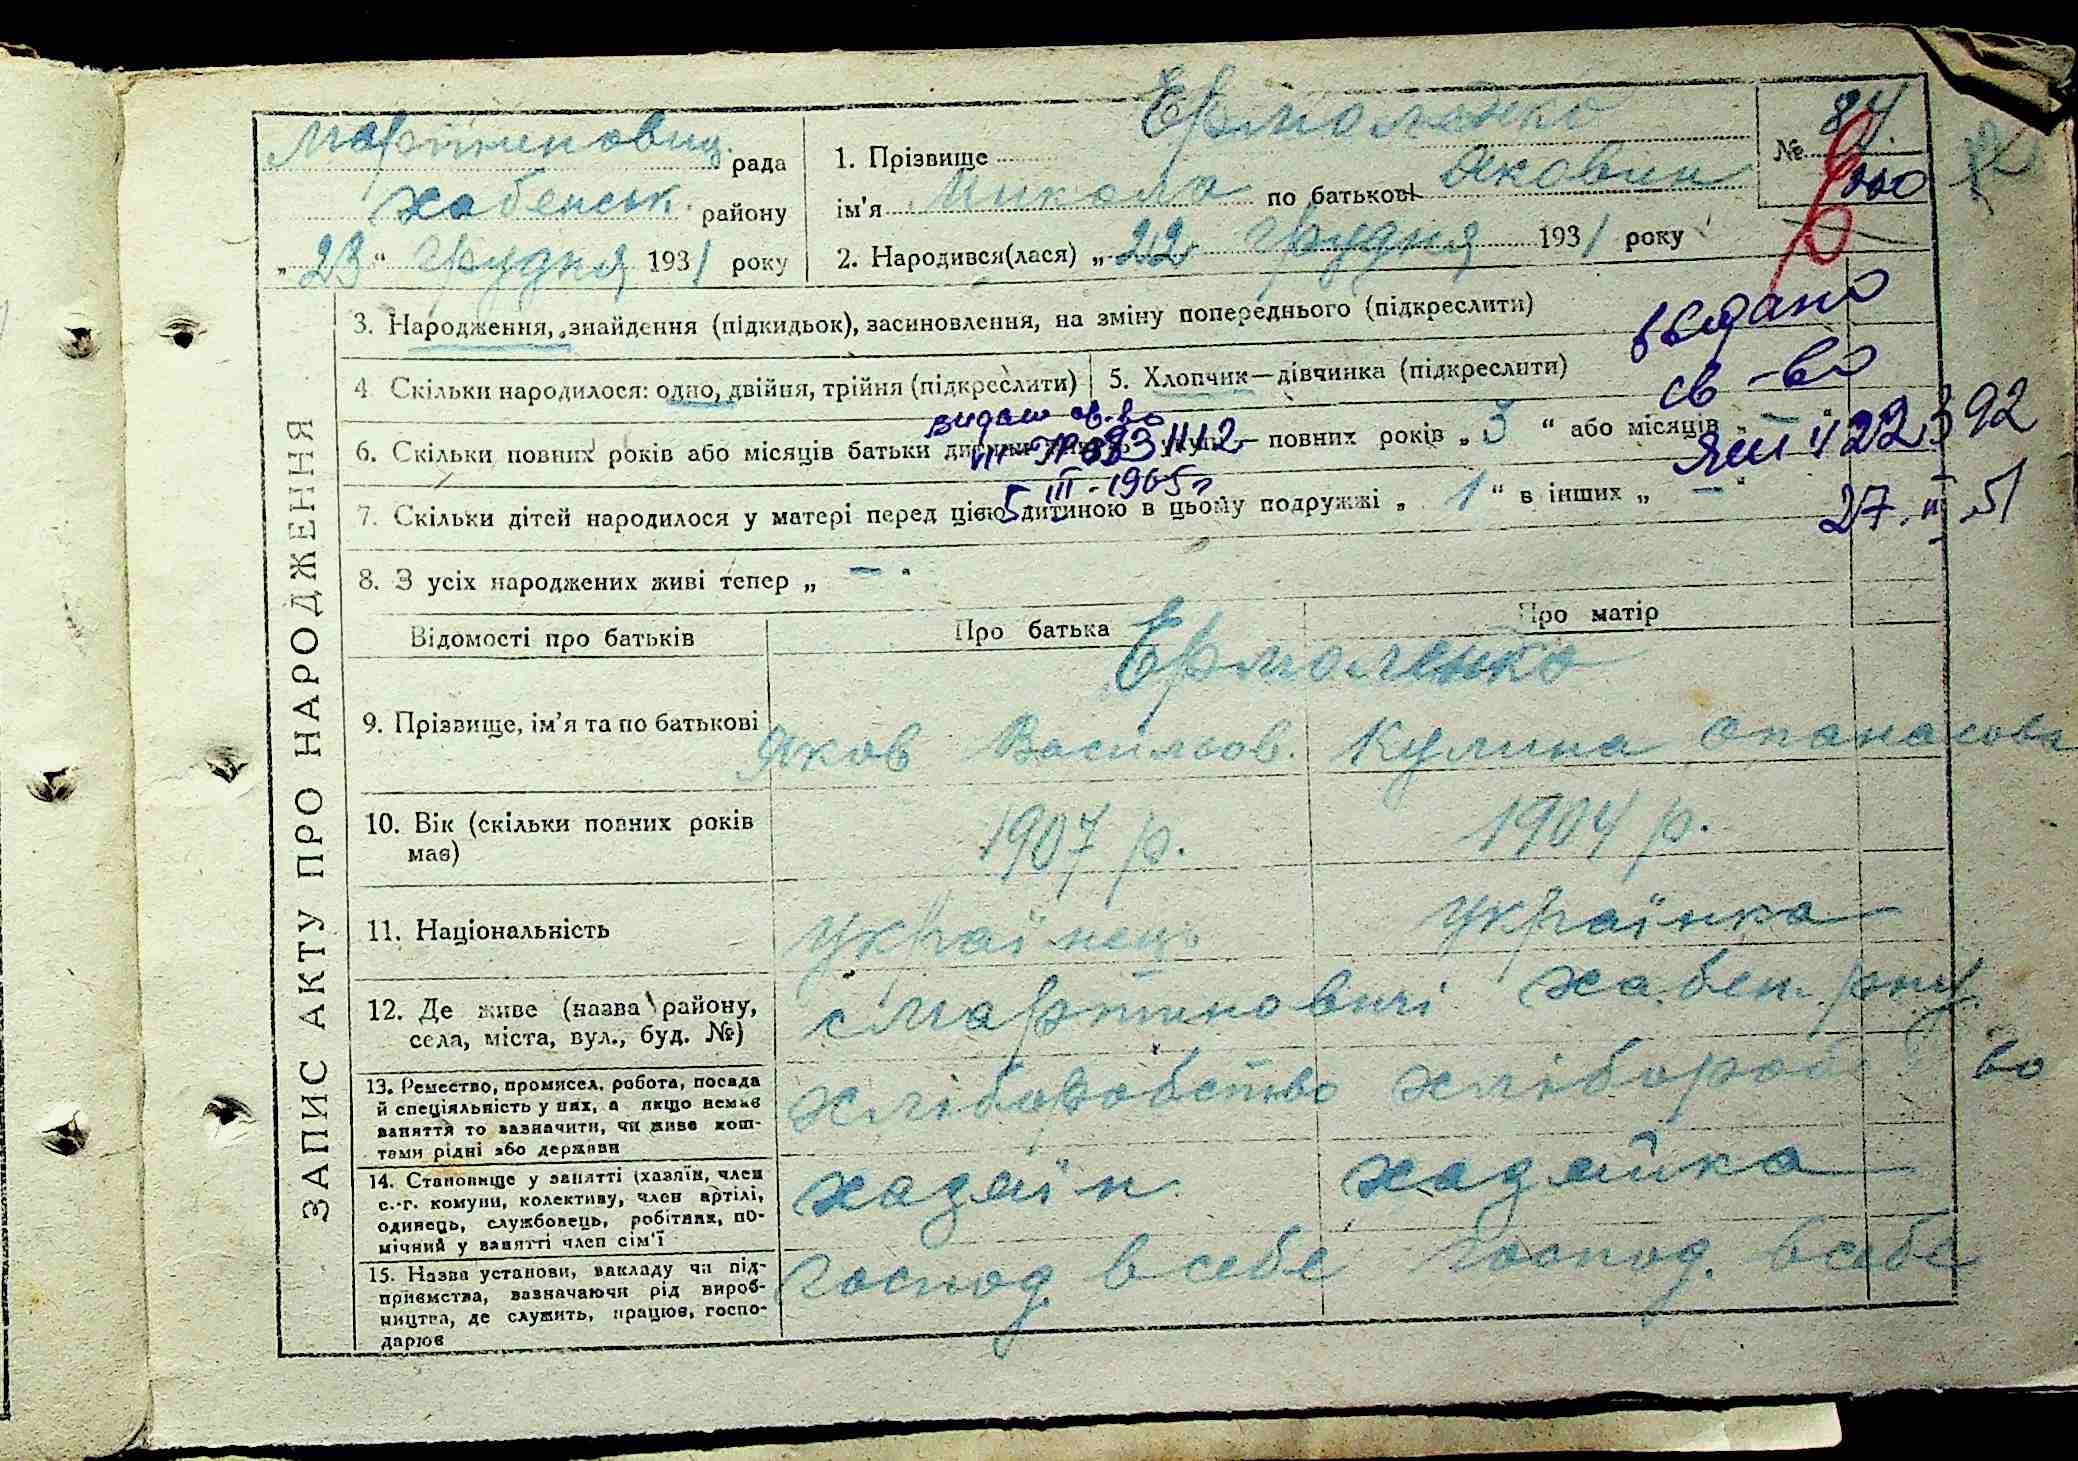 Мартинович. рада
Хабенськ. району
„23“ грудня 1931 року
1. Прізвище Ермоленко
ім'я Микола по батькові Якович
2. Народився(лася) „22 грудня 1931 року
№ 84
ЗАПИС АКТУ ПРО НАРОДЖЕННЯ
3. Народження, знайдення (підкидьок), засиновлення, на зміну попереднього (підкреслити)
4 Скільки народилося: одно, двійня, трійня (підкреслити)
5. Хлопчик—дівчинка (підкреслити)
видано
св-во
422392
27.II.51
видано св-во
5 III-1965 г
6. Скільки повних років або місяців батьки — повних років „3“ або місяців „—“
7. Скільки дітей народилося у матері перед цією дитиною в цьому подружжі „1“ в інших „—“
8. З усіх народжених живі тепер „—“
Відомості про батьків
Про батька
Про матір
Ермоленко
9. Прізвище, ім'я та по батькові
Яков Васильов.
Кулина Опанасова
10. Вік (скільки повних років має)
1907 р.
1904 р.
11. Національність
українець
українка
12. Де живе (назва району,
села, міста, вул., буд. №)
с Мартиновичі Хабен. р-ну
13. Ремество, промисел, робота, посада
й спеціяльність у них, а якщо немає
заняття то зазначити, чи живе кош-
тами рідні або держави
хліборобство
хліборобство
14. Становище у занятті (хазяїн, член
с.-г. комуни, колективу, член артілі,
одинець, службовець, робітник, по-
мічний у занятті член сім'ї
хазяїн
хазяйка
15. Назва установи, закладу чи під-
приємства, зазначаючи рід вироб-
ництва, де служить, працює, госпо-
дарює
господ. в себе
господ. в себе